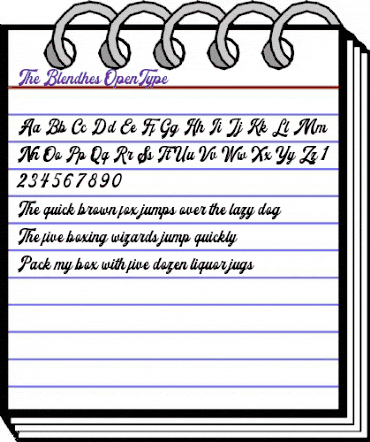 The Blendhes OpenType
Aa Bb Cc Dd Ee Ff Gg Hh Ii Jj Kk Ll Mm
Nn Oo Pp Qq Rr Ss Tt Uu Vv Ww Xx Yy Zz 1
2 3 4 5 6 7 8 9 0
The quick brown fox jumps over the lazy dog
The five boxing wizards jump quickly
Pack my box with five dozen liquor jugs